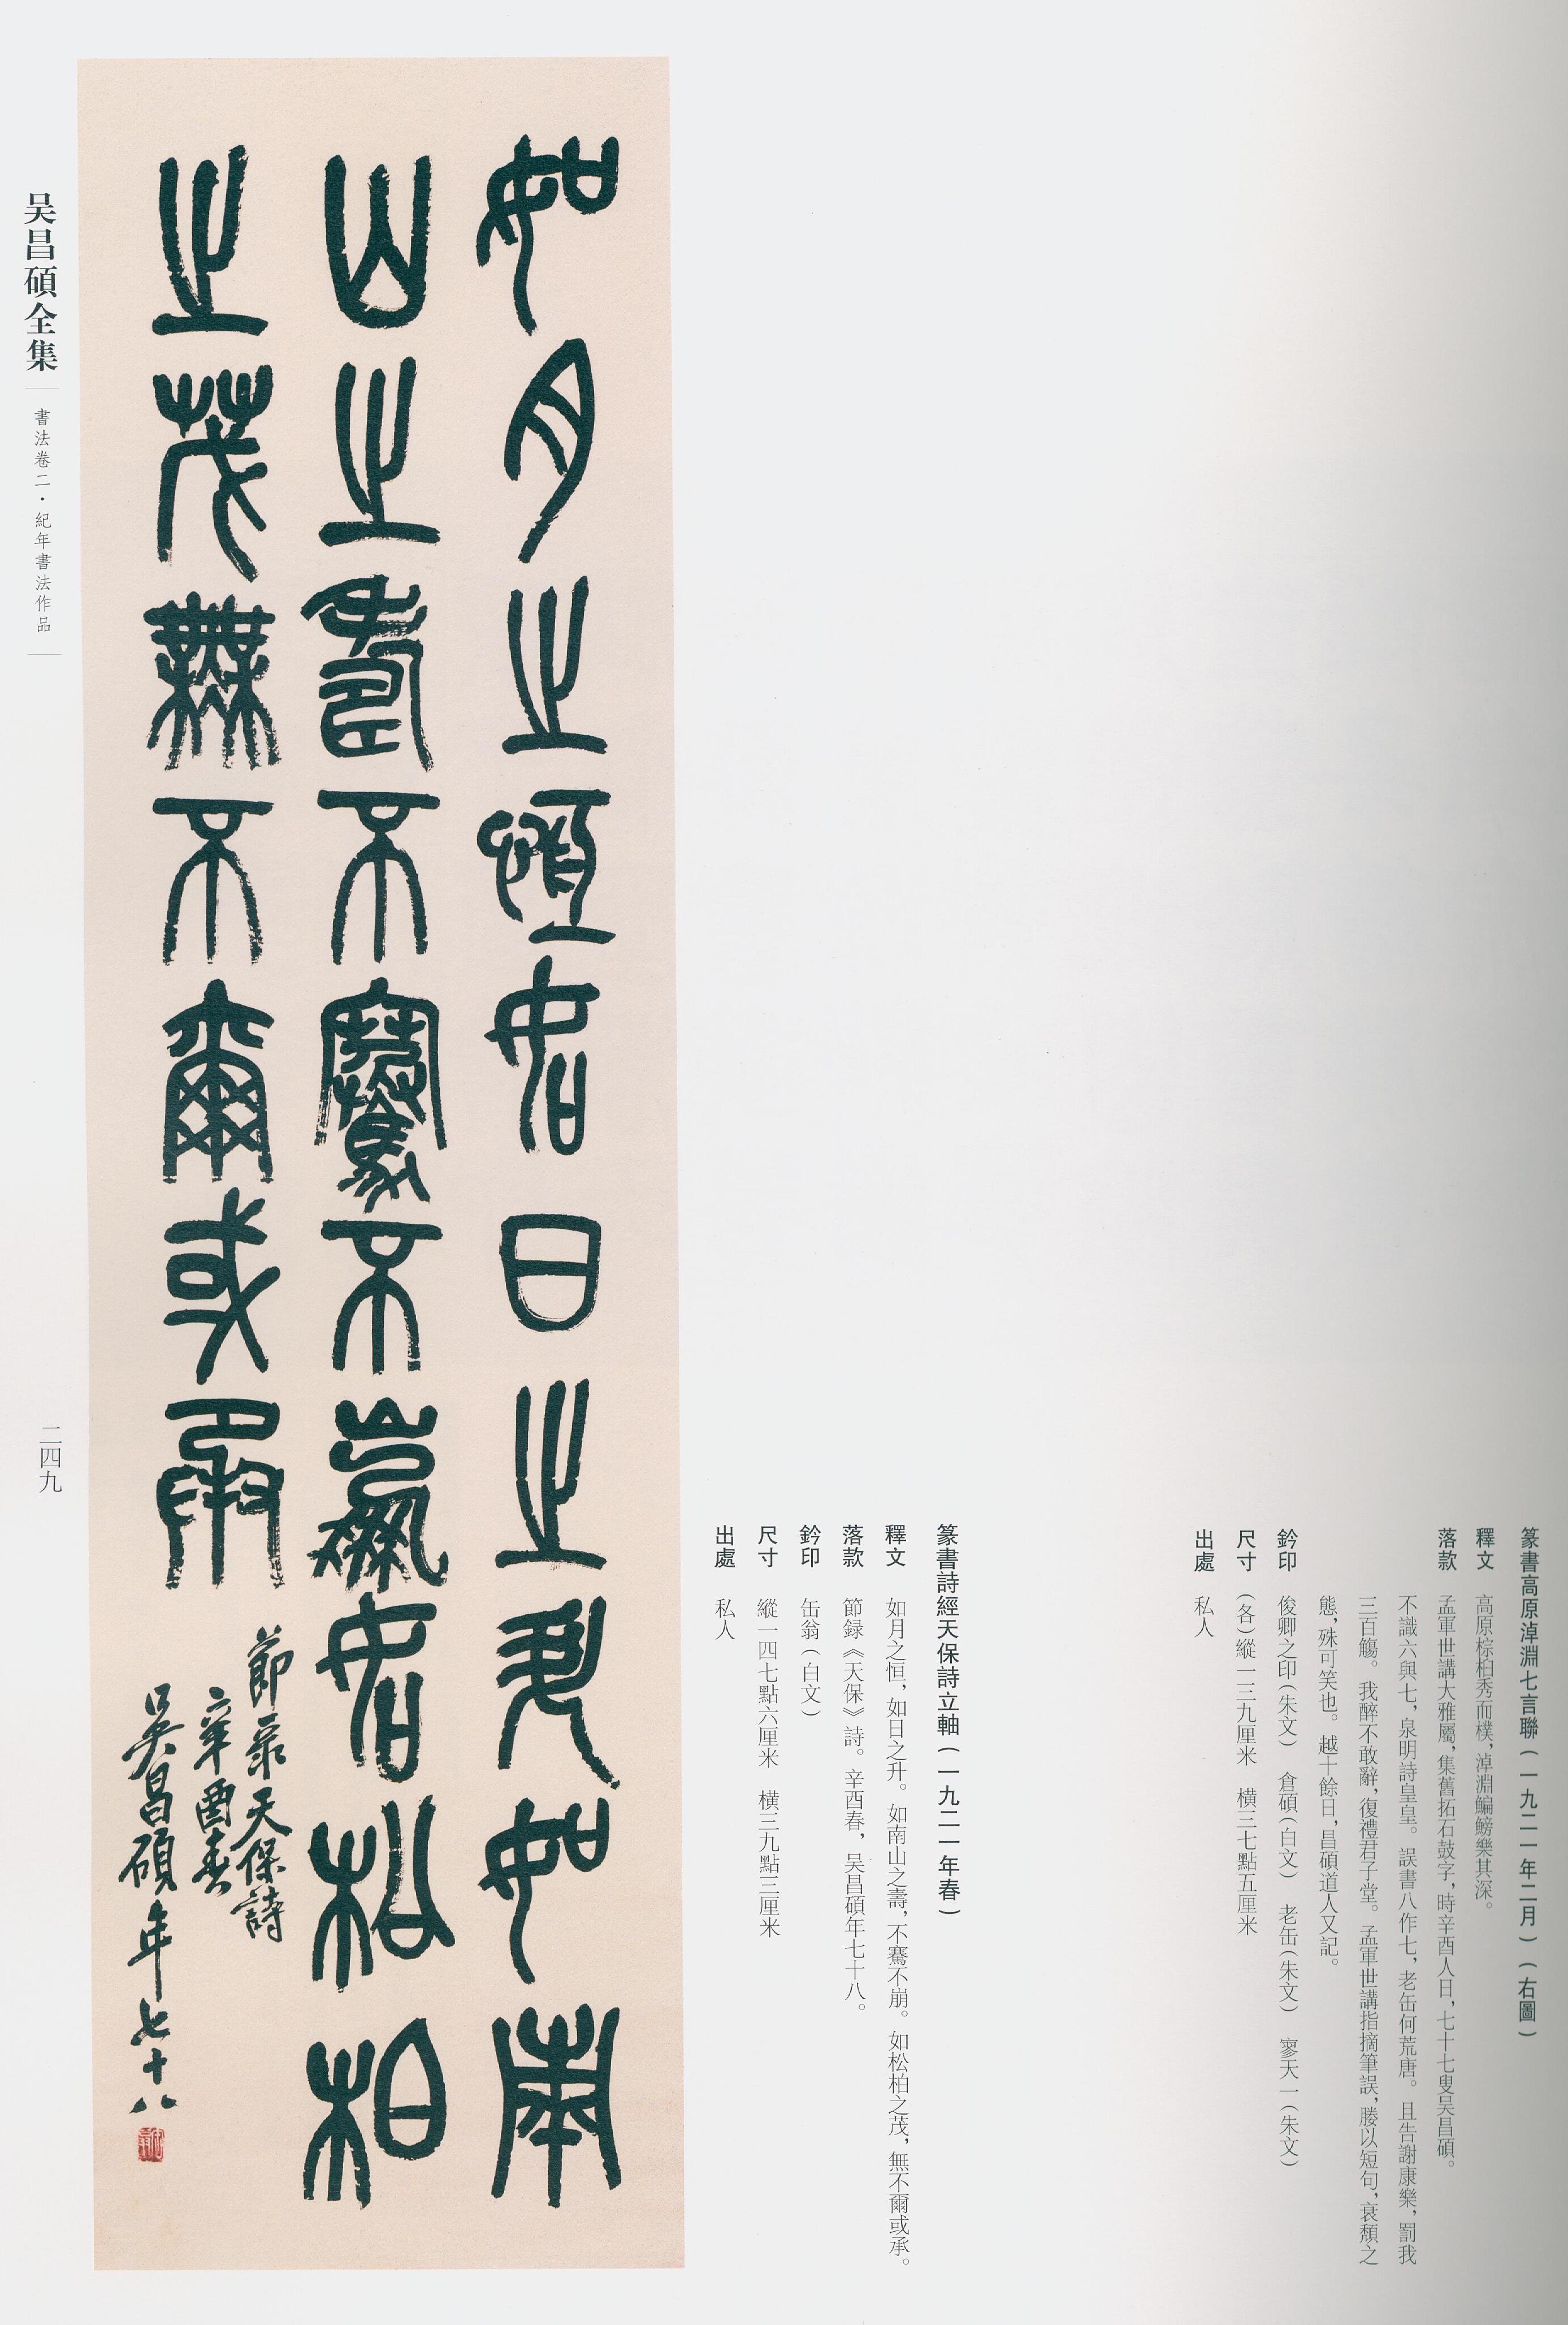 篆書高原淖淵七言聯(一九二一年二月)(右圖)
釋文　高原棕柏秀而樸,淖淵鯿鰟樂其深。
落款　孟軍世講大雅屬,集舊拓石鼓字,時辛酉人日,七十七叟吴昌碩。
不識六與七,泉明詩皇皇。誤書八作七,老缶何荒唐。且告謝康樂,罰我
三百觴。我醉不敢辭,復禮君子堂。孟軍世講指摘筆誤,媵以短句,衰頽之
態,殊可笑也。越十餘日,昌碩道人又記。
鈐印　俊卿之印(朱文)　倉碩(白文)　老缶(朱文)　寥天一(朱文)
尺寸　(各)縱一三九厘米　橫三七點五厘米
出處　私人
篆書詩經天保詩立軸(一九二一年春)
釋文　如月之恒,如日之升。如南山之壽,不騫不崩。如松柏之茂,無不爾或承。
落款　節録《天保》詩。辛酉春,吴昌碩年七十八。
鈐印　缶翁(白文)
尺寸　縱一四七點六厘米　橫三九點三厘米
出處　私人
如月之恒如日之升如南
山之壽不騫不崩如松柏
之茂無不爾或承
節录天保詩
辛酉春
吴昌碩年七十八
吴昌碩全集
書法卷二·紀年書法作品
二四九